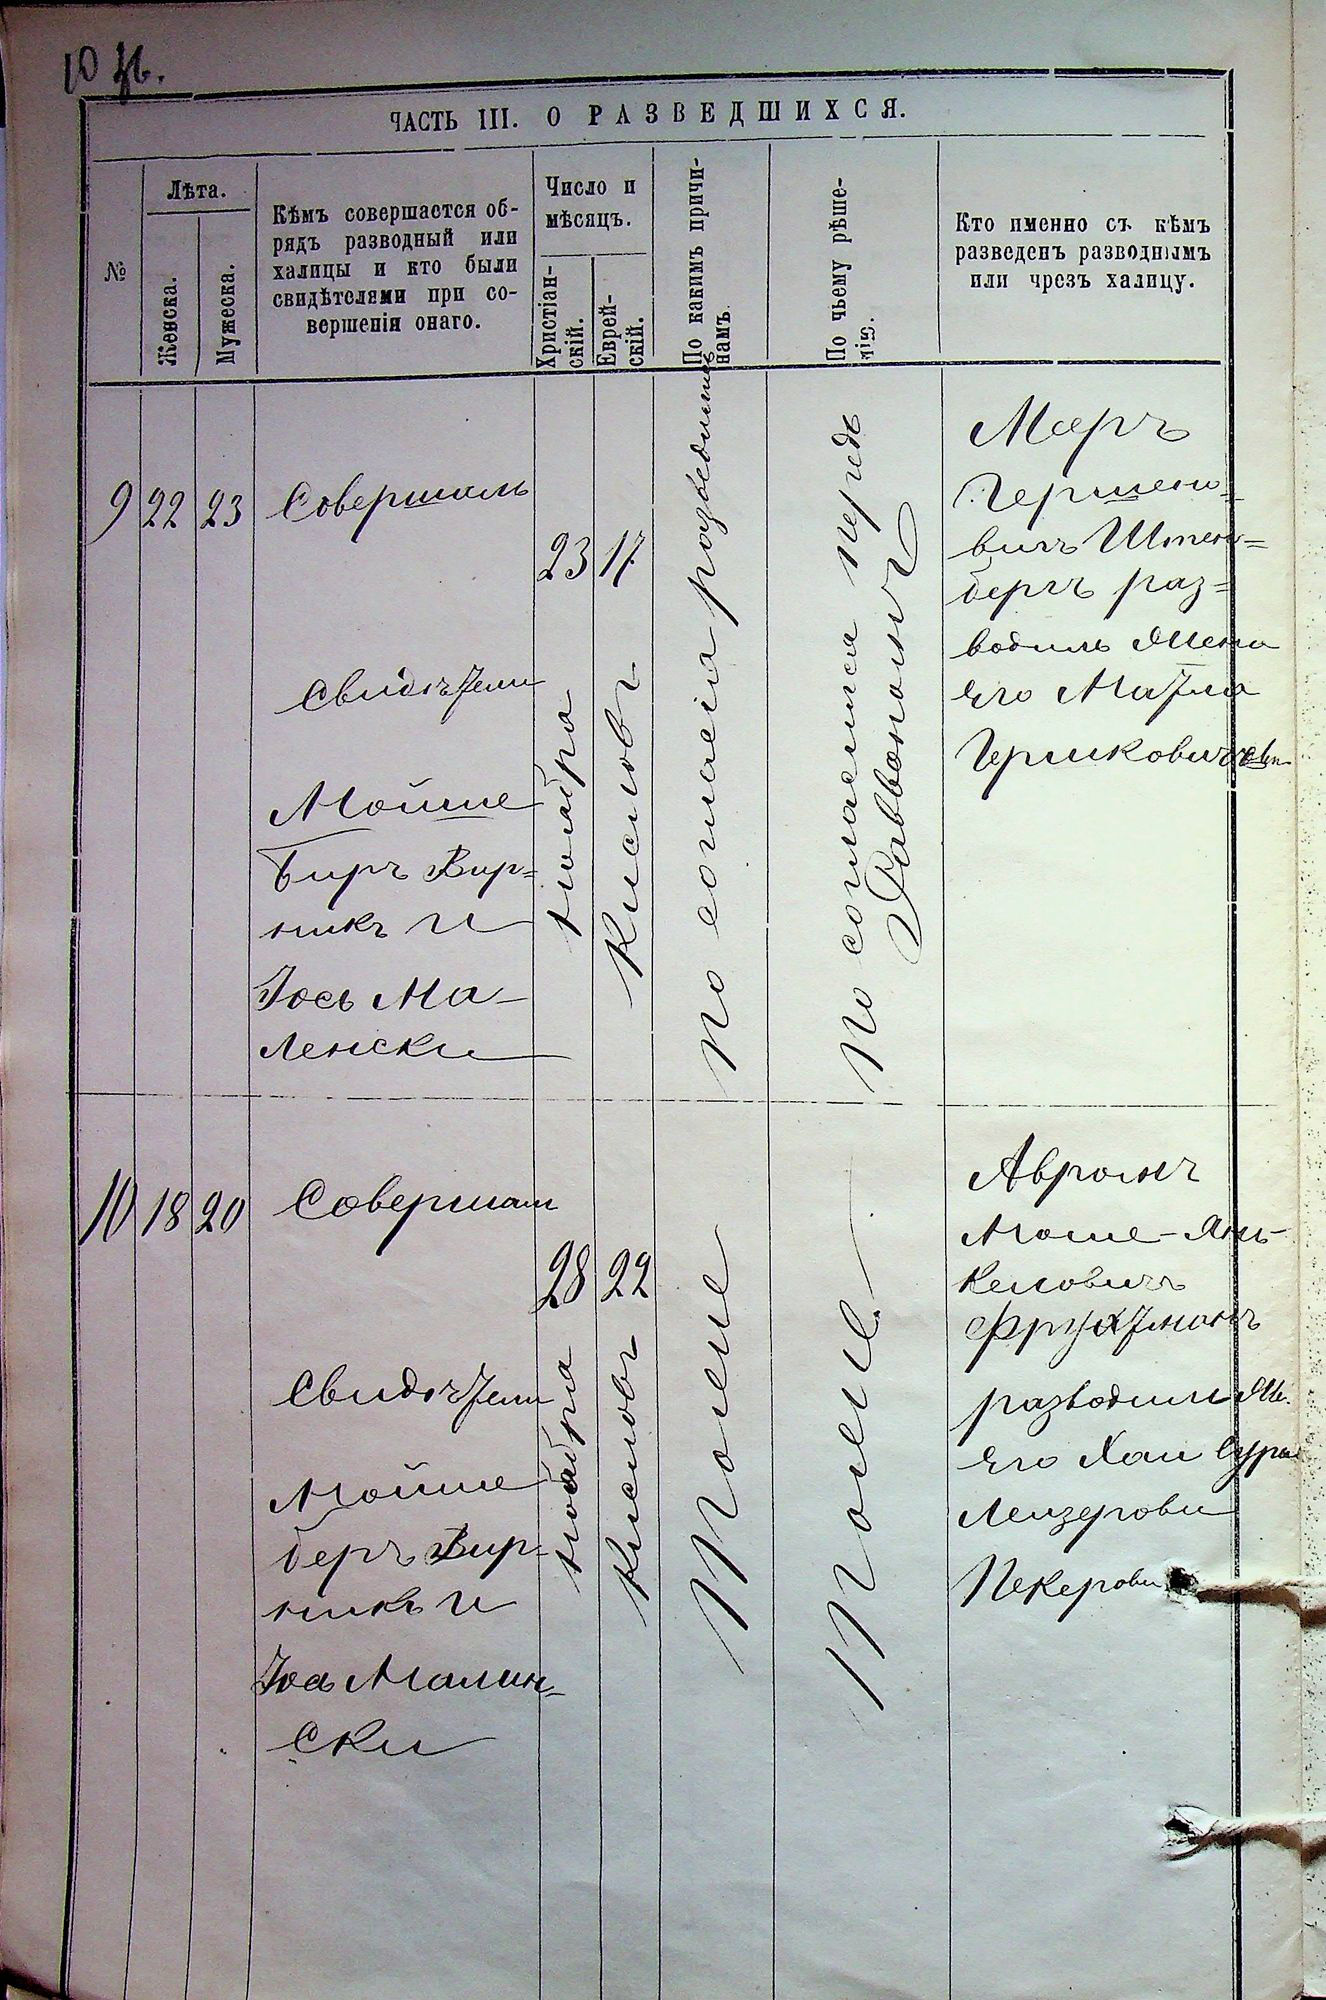 ЧАСТЬ III. О РАЗВЕДШИХСЯ.
№
Лѣта.
Женска.
Мужеска.
Кѣмъ совершается об-
рядъ разводный или
халицы и кто были
свидѣтелями при со-
вершеніи онаго.
Число и
мѣсяцъ.
Христіан-
скій.
Еврей-
скій.
По какимъ причи-
намъ.
По чьему рѣше-
нію.
Кто именно съ кѣмъ
разведенъ разводнымъ
или чрезъ халицу.
9 22 23
Совершалъ
Свидѣтели
Мойше
Биръ Вир-
никъ и
Іось Ма-
ленски
23
ноабра
17
Кислов
по согласія разведшихъ
по согласится передъ
Раввономъ
Меръ
Гершено-
вичъ Штен-
бергъ раз-
водилъ Жена
Его Матла
10 18 20
Совершал
Свидѣтели
Мойше
беръ Вир-
никъ и
Іось Малин-
ски
28
ноабра
22
Кислов
Тоже
Тоже
Авромъ
Моше-Ян-
келовичъ
Фрухтманъ
разводили Же.
Его Хаи Сура
Лейзерови
Пекерови